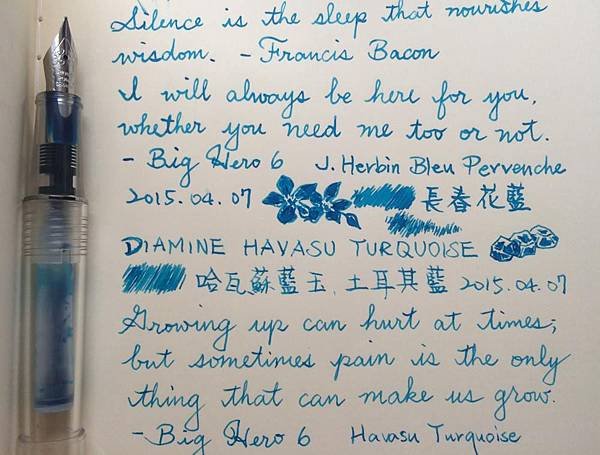 Silence is the sleep that nourishes
wisdom. - Francis Bacon
I will always be here for you,
whether you need me too or not.
- Big Hero 6 J. Herbin Bleu Pervenche
2015.04.07 長春花藍
DIAMINE HAVASU TURQUOISE
哈瓦蘇藍玉 土耳其藍 2015.04.07
Growing up can hurt at times;
but sometimes pain is the only
thing that can make us grow.
- Big Hero 6 Havasu Turquoise